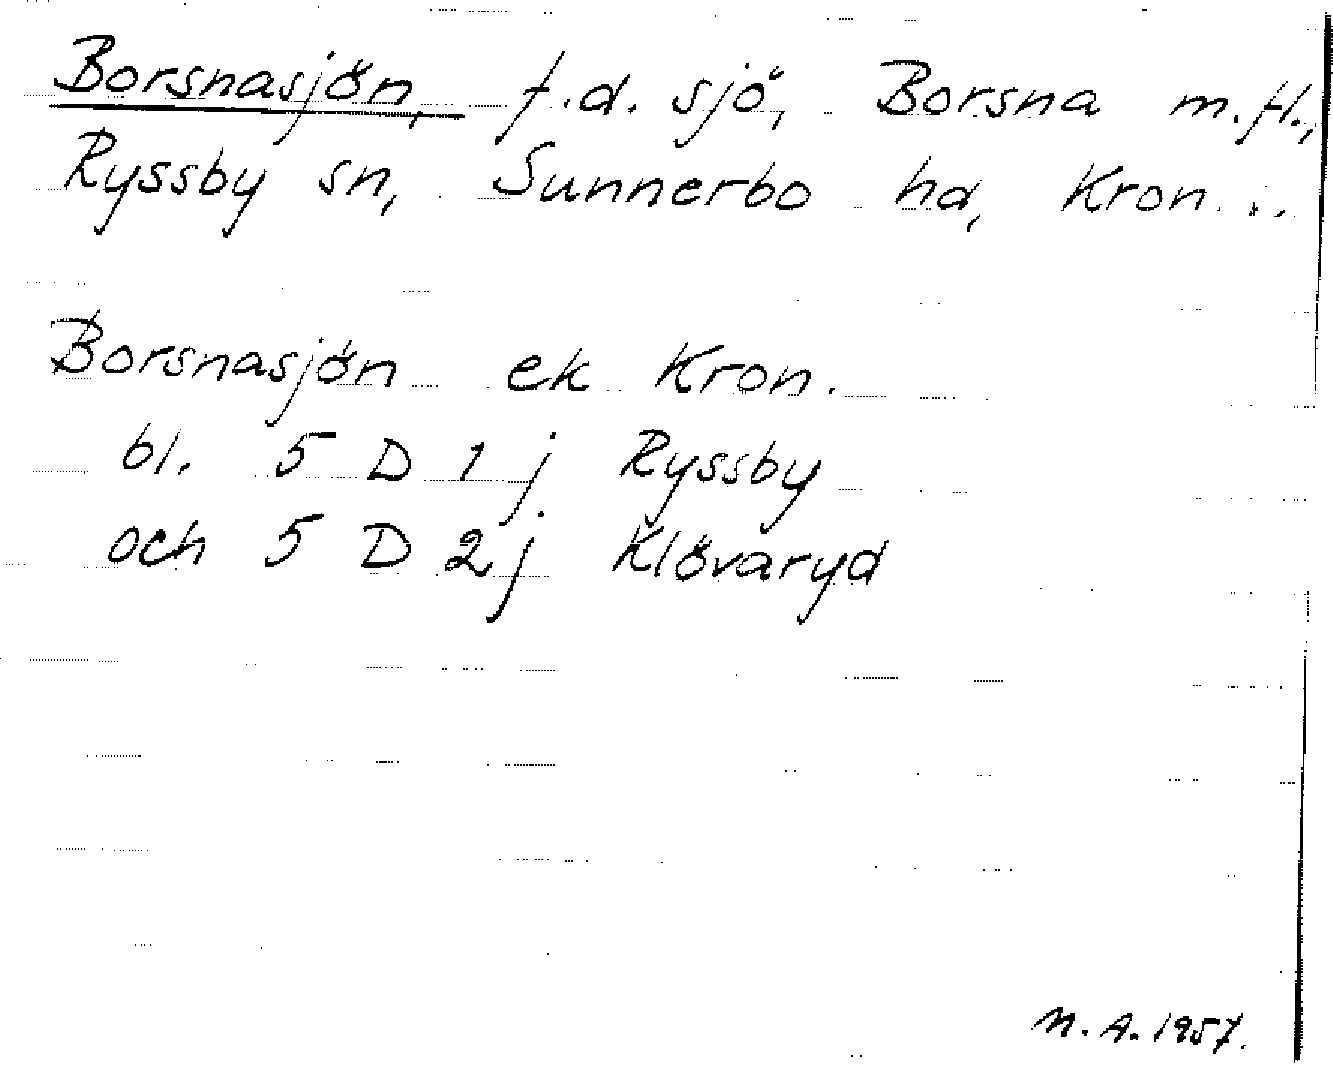 Borsnasjön, f.d. sjö, Borsna m.fl.,
Ryssby sn, Sunnerbo hd, Kron...
Borsnasjön ek Kron.
bl. 5 D 1 j Ryssby
och 5 D 2 j Klövaryd
N. A. 1957.